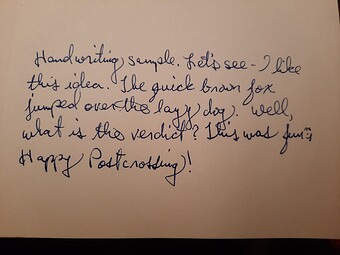 Handwriting sample. Let's see - I like
this idea. The quick brown fox
jumped over the lazy dog. Well,
what is the verdict? This was fun!
Happy Postcrossing!